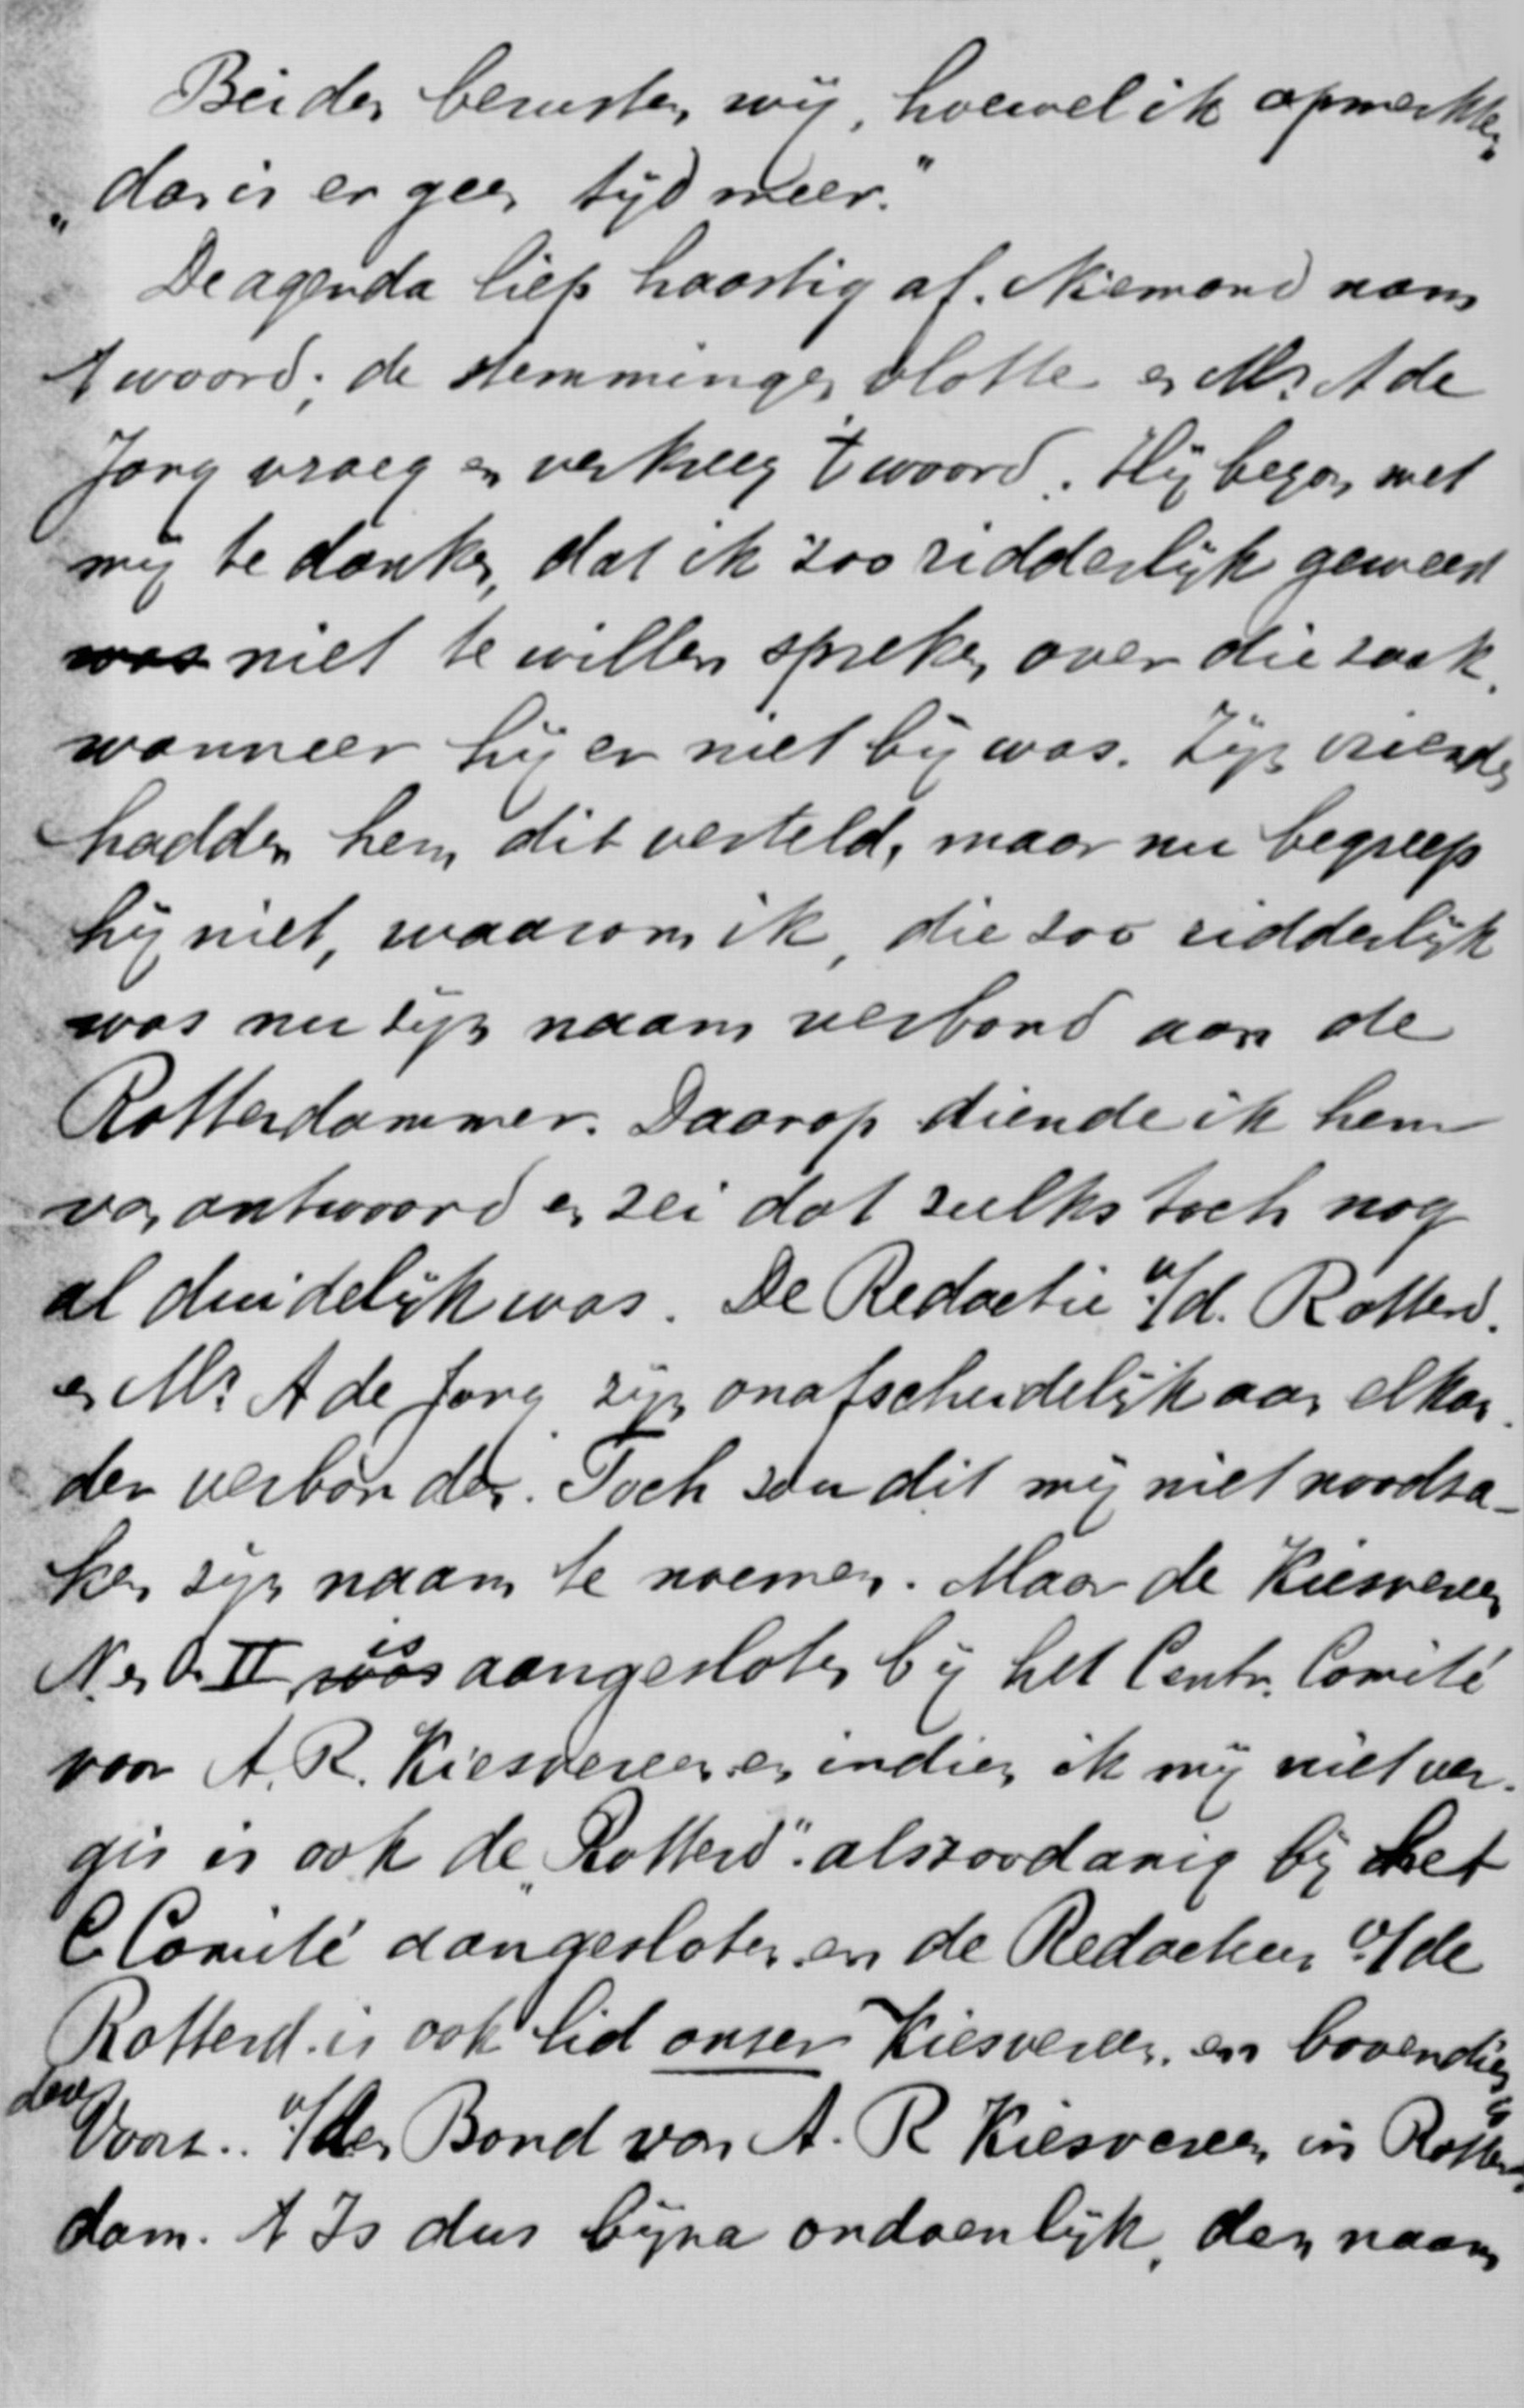 Beiden berusten wij, hoewel ik opmerkte,
„dan is er geen tijd meer."
De agenda liep haastig af. Niemand nam
't woord; de stemmingen vlotte en Mr. A de
Jong vroeg en verkreeg 't woord. Hij begon met
mij te danken, dat ik zoo ridderlijk geweest
was niet te willen spreken over die zaak,
wanneer hij er niet bij was. Zijn vrienden
hadden hem dit verteld, maar nu begreep
hij niet, waarom ik, die zoo ridderlijk
was nu zijn naam verbond aan de
Rotterdammer. Daarop diende ik hem
van antwoord en zei dat zulks toch nog
al duidelijk was. De Redactie v/d. Rotterd.
en Mr. A de Jong zijn onafscheidelijk aan elkan-
der verbonden. Toch zou dit mij niet noodza-
ken zijn naam te noemen. Maar de Kiesvereen
N. en O. II was is aangesloten bij het Centr. Comité
voor A. R. Kiesvereen. en indien ik mij niet ver-
gis is ook de „Rotterd". alszoodanig bij het
C Comité aangesloten en de Redacteur v/de
Rotterd. is ook lid onzer Kiesvereen. en bovendien
Voorz.. v/den Bond van A. R Kiesvereen in Rotter-
dam. 't Is dus bijna ondoenlijk, den naam